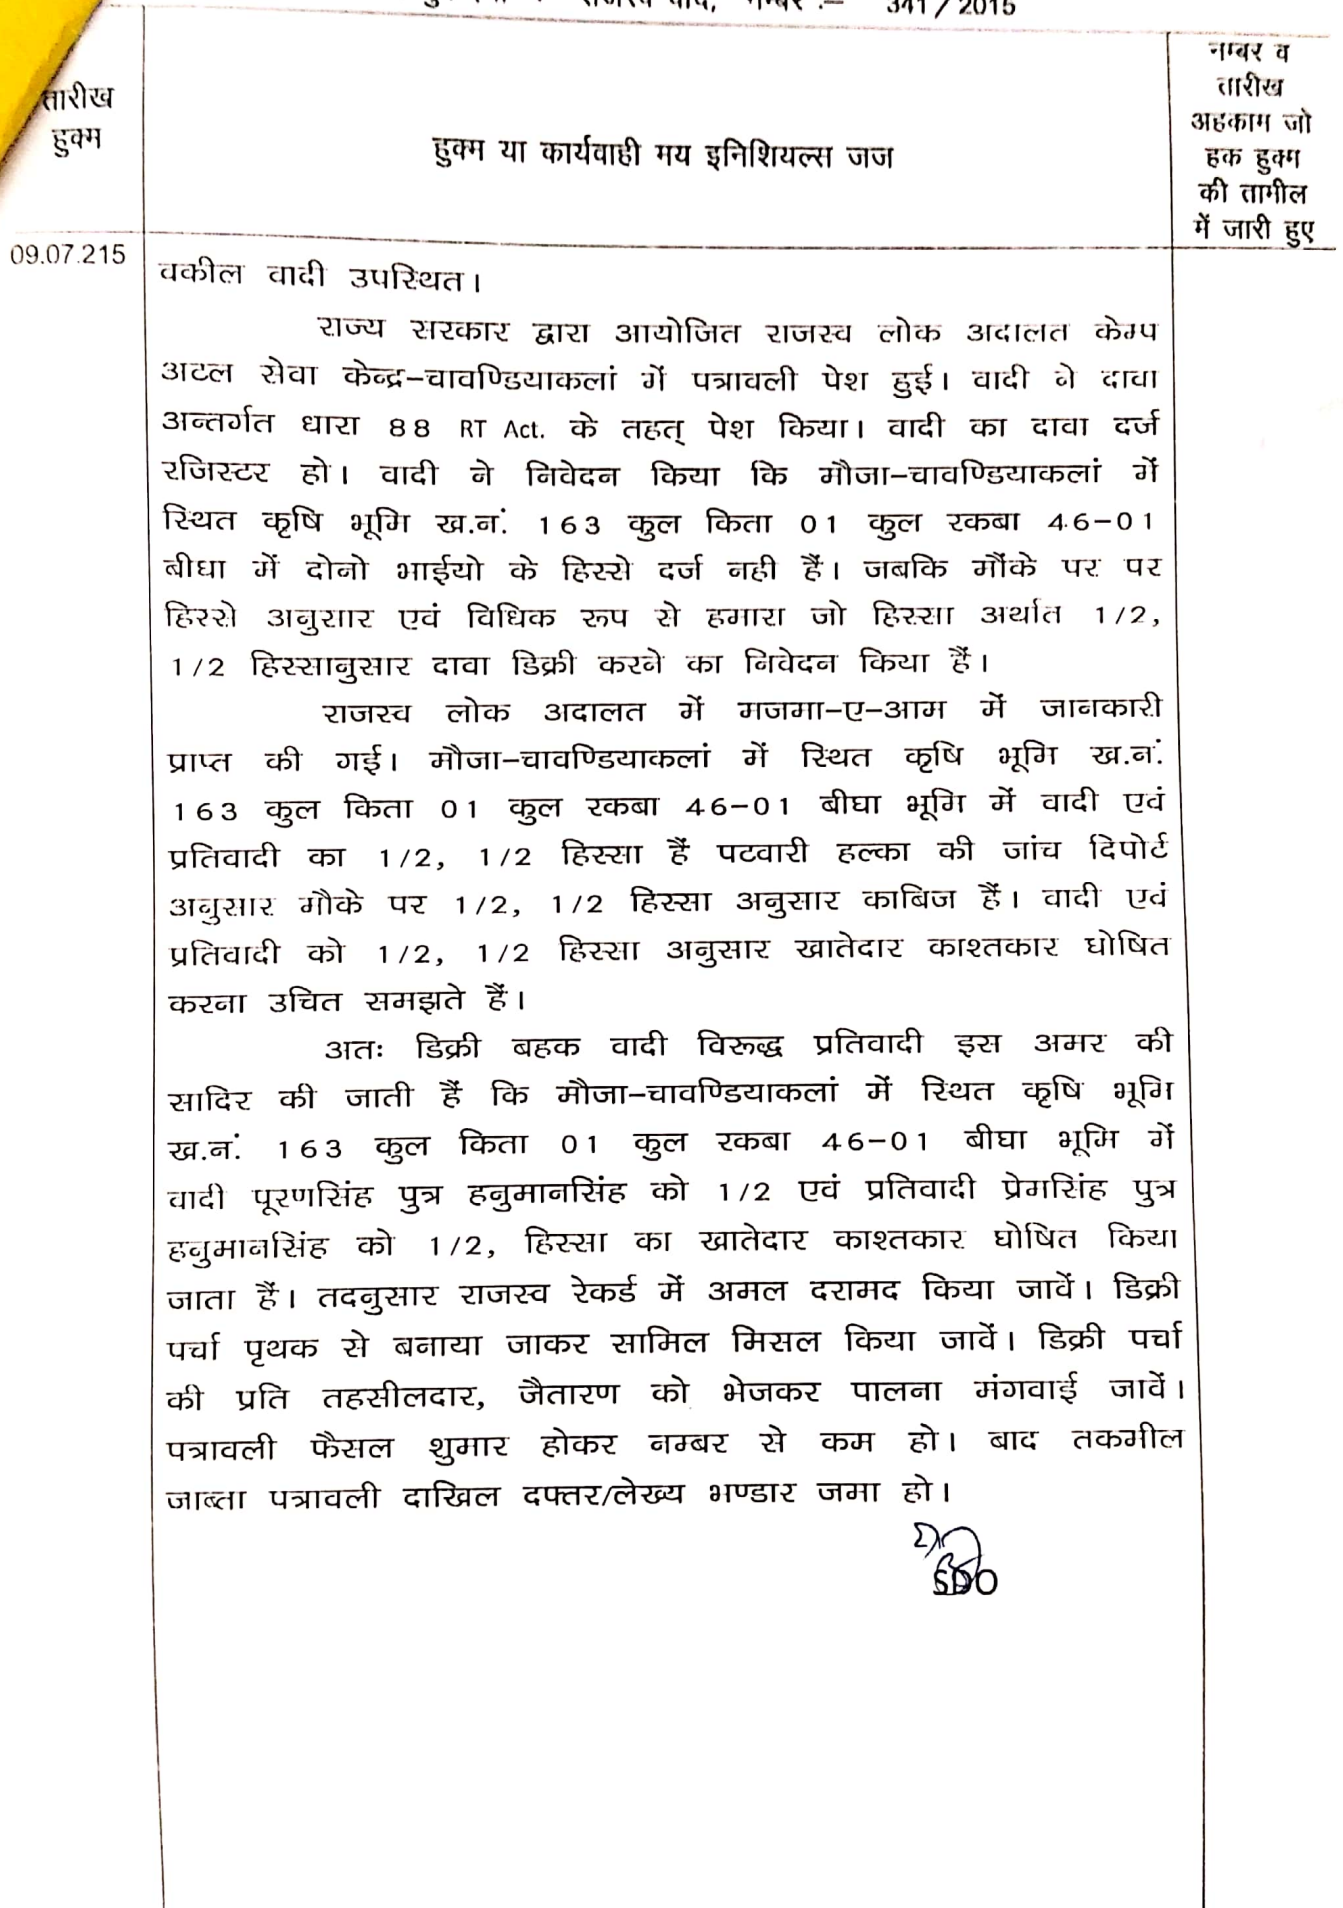 राजस्व वाद, नम्बर :- 341/2015
तारीख
हुक्म
हुक्म या कार्यवाही मय इनिशियल्स जज
नम्बर व
तारीख
अहकाम जो
हक हुक्म
की तामील
में जारी हुए
09.07.215
वकील वादी उपस्थित।
राज्य सरकार द्वारा आयोजित राजस्व लोक अदालत केम्प
अटल सेवा केन्द्र-चावण्डियाकलां में पत्रावली पेश हुई। वादी ने दावा
अन्तर्गत धारा 88 RT Act. के तहत् पेश किया। वादी का दावा दर्ज
रजिस्टर हो। वादी ने निवेदन किया कि मौजा-चावण्डियाकलां में
स्थित कृषि भूमि ख.नं. 163 कुल किता 01 कुल रकबा 46-01
बीघा में दोनो भाईयो के हिस्से दर्ज नही हैं। जबकि मौंके पर पर
हिस्से अनुसार एवं विधिक रूप से हमारा जो हिस्सा अर्थात 1/2,
1/2 हिस्सानुसार दावा डिक्री करने का निवेदन किया हैं।
राजस्व लोक अदालत में मजमा-ए-आम में जानकारी
प्राप्त की गई। मौजा-चावण्डियाकलां में स्थित कृषि भूमि ख.नं.
163 कुल किता 01 कुल रकबा 46-01 बीघा भूमि में वादी एवं
प्रतिवादी का 1/2, 1/2 हिस्सा हैं पटवारी हल्का की जांच दिपोर्ट
अनुसार मौके पर 1/2, 1/2 हिस्सा अनुसार काबिज हैं। वादी एवं
प्रतिवादी को 1/2, 1/2 हिस्सा अनुसार खातेदार काश्तकार घोषित
करना उचित समझते हैं।
अतः डिक्री बहक वादी विरूद्ध प्रतिवादी इस अमर की
सादिर की जाती हैं कि मौजा-चावण्डियाकलां में स्थित कृषि भूमि
ख.नं. 163 कुल किता 01 कुल रकबा 46-01 बीघा भूमि में
वादी पूरणसिंह पुत्र हनुमानसिंह को 1/2 एवं प्रतिवादी प्रेमसिंह पुत्र
हनुमानसिंह को 1/2, हिस्सा का खातेदार काश्तकार घोषित किया
जाता हैं। तदनुसार राजस्व रेकर्ड में अमल दरामद किया जावें। डिक्री
पर्चा पृथक से बनाया जाकर सामिल मिसल किया जावें। डिक्री पर्चा
की प्रति तहसीलदार, जैतारण को भेजकर पालना मंगवाई जावें।
पत्रावली फैसल शुमार होकर नम्बर से कम हो। बाद तकमील
जाब्ता पत्रावली दाखिल दफ्तर/लेख्य भण्डार जमा हो।
SDO